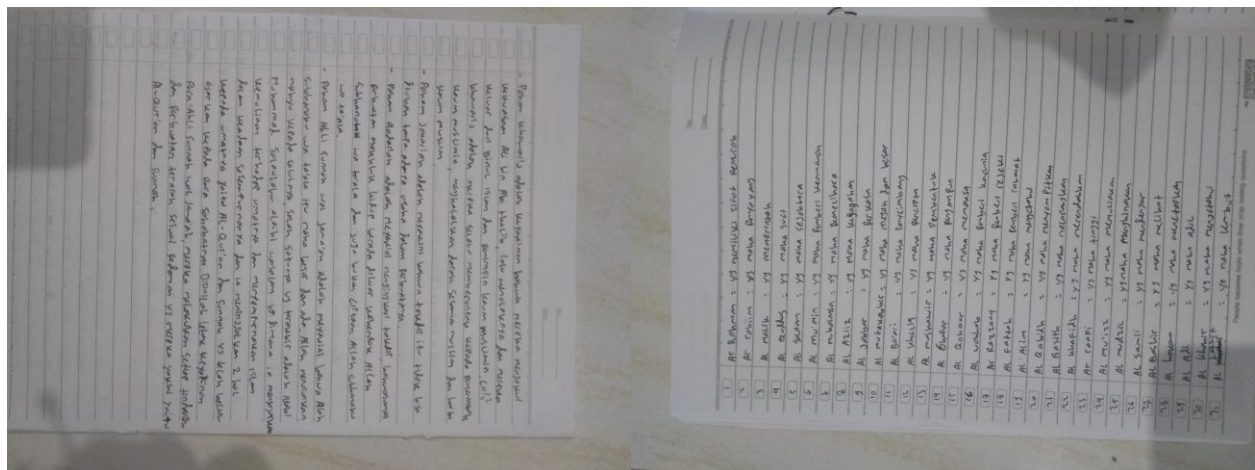 - Paham khowarij adalah keyakinan bahwa mereka mendukung
kekuasaan Ali bin Abi thholib lalu
keluar dari dinul islam dan pemimpin kaum muslimin (cs)
khawarij adalah mereka selalu memberontak kepada pemerintah
kaum muslimin, menghalalkan darah sesama muslim dan harta
kaum muslim
- Paham Jabariah adalah meyakini bahwa takdir itu tidak bisa
diubah tanpa adanya usaha dalam perbuatannya.
- Paham Qadariah adalah meyakini mengingkari takdir bahwasanya
perbuatan makhluk hidup berada diluar kehendak Allah
Subhanahu wa ta'ala dan juga bukan ciptaan Allah subhanahu
wa ta'ala.
- Paham Ahli sunnah wal jama'ah adalah meyakini bahwa Allah
subhanahu wa ta'ala itu maha besar dan ada, Allah menurunkan
wahyu kepada nabi
Muhammad Salallahu alaihi wasalam yg dimana ia
kemuliaan terhadap umatnya dan menyempurnakan islam
dalam keadaan sesempurnanya dan ia meninggalkan 2 hal
kepada umatnya yaitu Al-Qur'an dan Sunnah yg telah beliau
ajarkan kepada para Sahabatnya Disinilah letak keyakinan
Para Ahli Sunnah wal jamaah, mereka melakukan setiap tindakan
dan perbuatan terarah sesuai pedoman yg mereka yakini yaitu
Al-Qur'an dan Sunnah
No.
Date
1 Ar Rahman = yg memiliki sifat pemurah
2 Ar rahiim = yg maha penyayang
3 AL malik = yg memerintah
4 AL Quddus = yg maha suci
5 AL Salam = yg maha sejahtera
6 AL Mu'min = yg maha pemberi keamanan
7 AL muhaimin = yg maha pemelihara
8 AL Aziiz = yg maha kegagahan
9 AL Jabbar = yg maha perkasa
10 AL mutakabbir = yg maha megah dan besar
11 AL Baari = yg maha penyeimbang
12 AL khaliq = yg maha pencipta
13 AL mushawir = yg maha pembentuk
14 A Ghafar = yg maha pengampun
15 AL Qahaar = yg maha memaksa
16 AL wahhab = yg maha pemberi karunia
17 Ar Razzaq = yg maha pemberi rezeki
18 AL fattah = yg maha pemberi rahmat
19 AL Alim = yg maha mengetahui
20 AL Qabidh = yg maha menyempitkan
21 AL Basith = yg maha melapangkan
22 AL khapidh = yg maha merendahkan
23 Ar raafi = yg maha tinggi
24 AL Mu'izz = yg maha memuliakan
25 AL mudzil = yg maha menghinakan
26 AL Samii = yg maha mendengar
27 AL Bashir = yg maha melihat
28 AL = yg maha menetapkan
29 AL Adl = yg maha adil
30 AL = yg maha mengetahui
31 AL = yg maha lembut